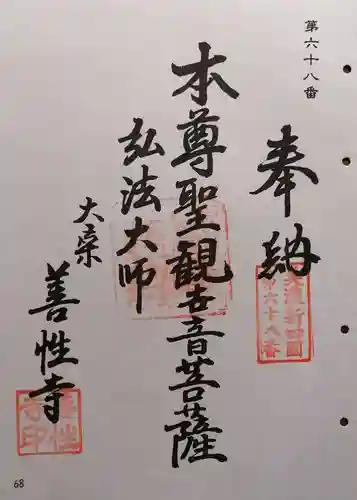 第六十八番
奉納
本尊聖観世音菩薩
弘法大師
大栄
善性寺
第六十八番
善性寺印
68